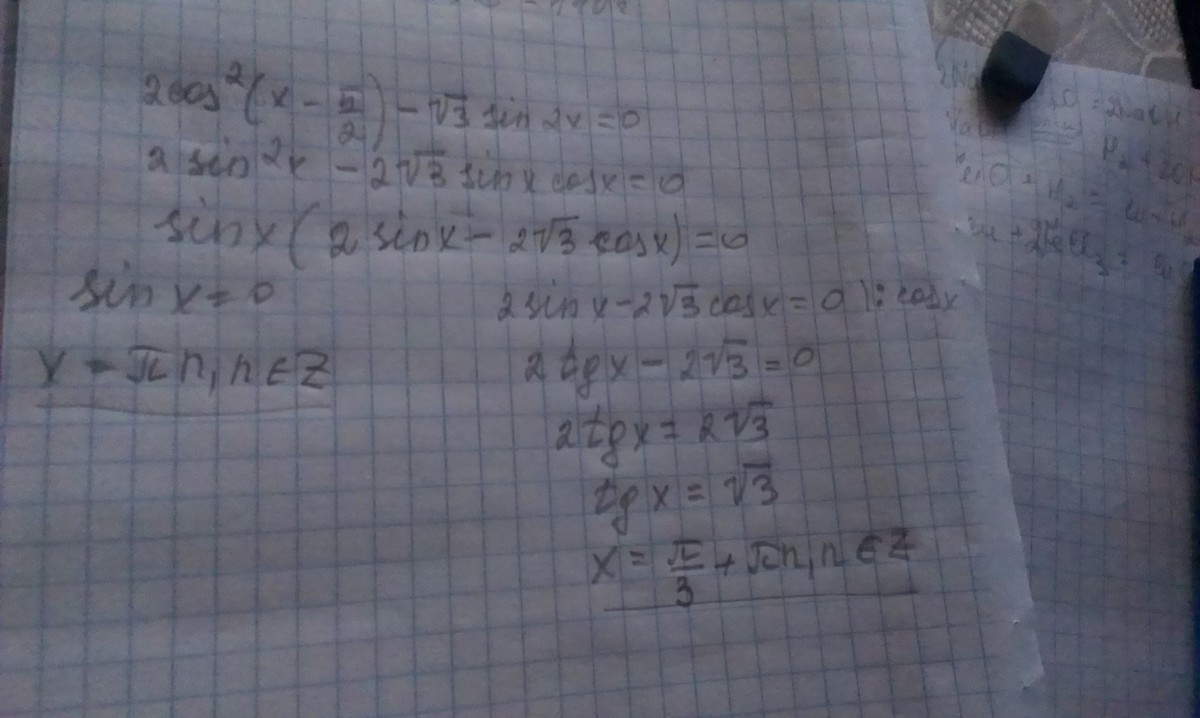 2cos²(x - π/2) - √3 sin 2x = 0
2 sin²x - 2√3 sin x cos x = 0
sin x (2 sin x - 2√3 cos x) = 0
sin x = 0
x = πn, n ∈ Z
2 sin x - 2√3 cos x = 0 |: cos x
2 tg x - 2√3 = 0
2tg x = 2√3
tg x = √3
x = π/3 + πn, n ∈ Z